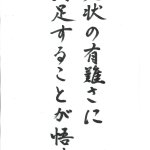 状の有難さに
足することが悟